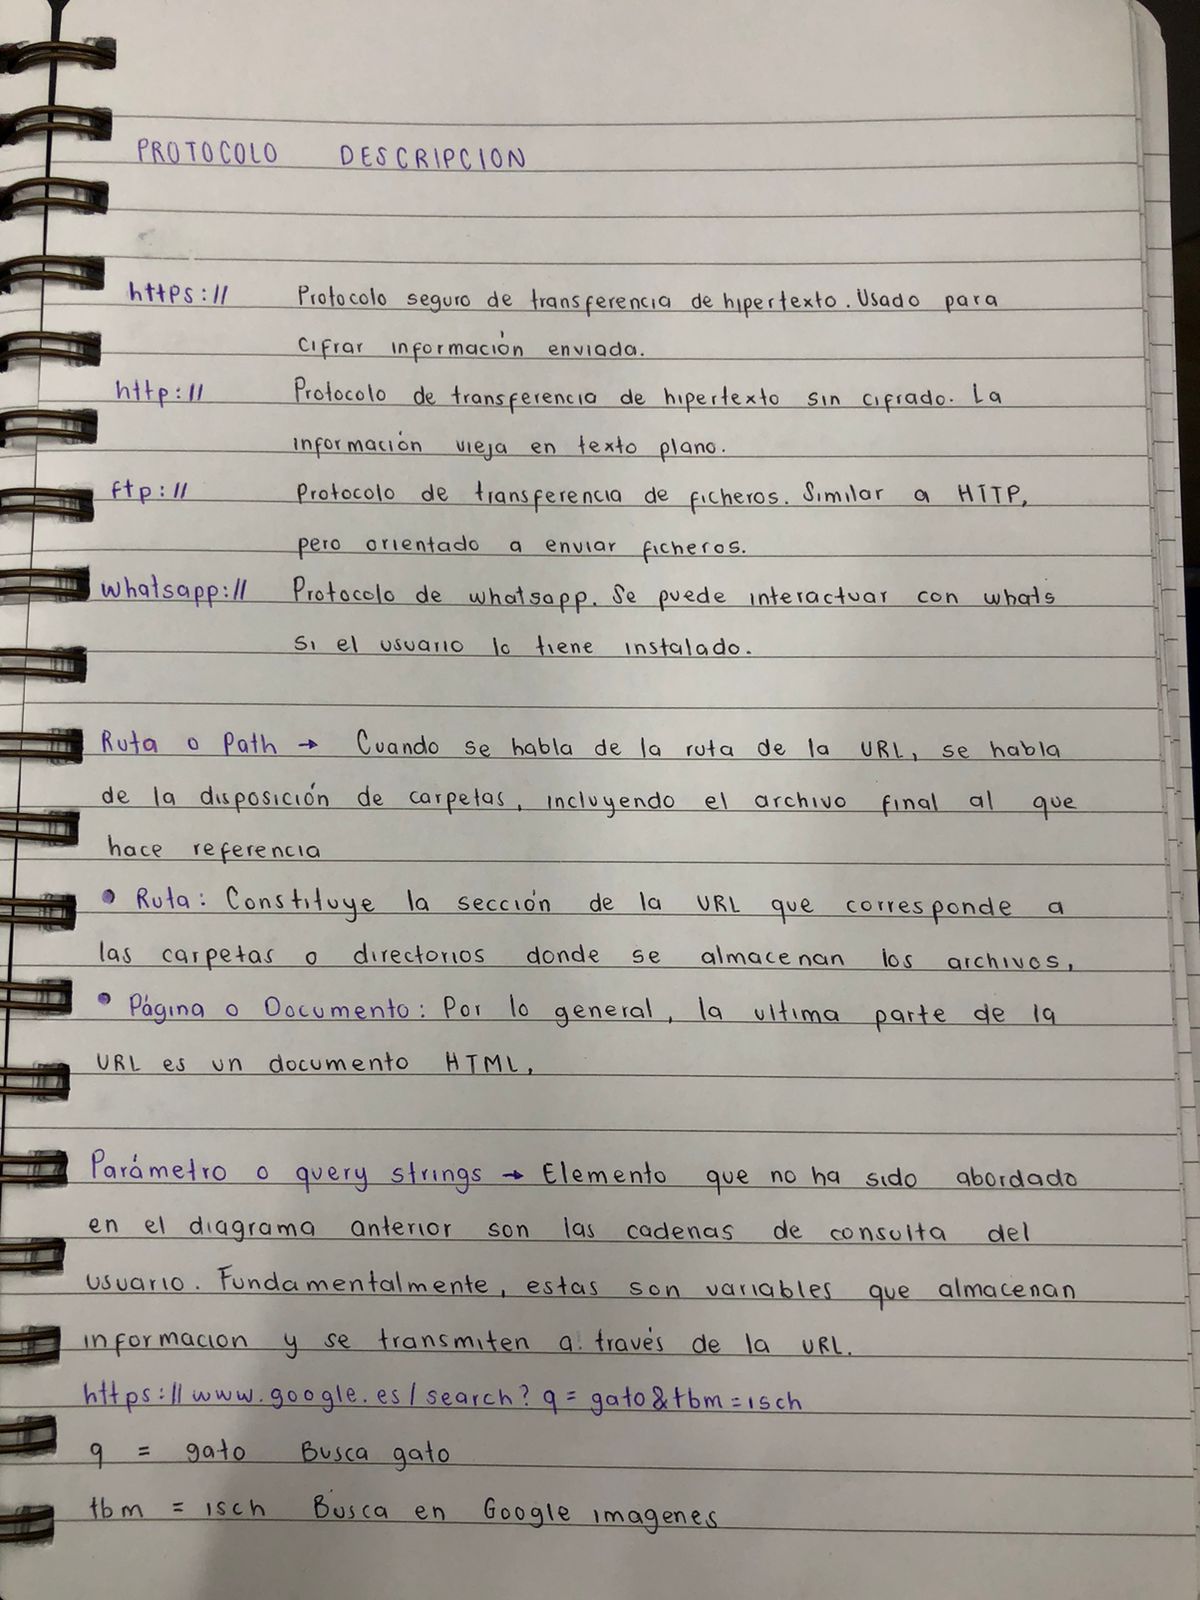 PROTOCOLO DESCRIPCION
https:// Protocolo seguro de transferencia de hipertexto. Usado para
cifrar información enviada.
http:// Protocolo de transferencia de hipertexto sin cifrado. La
información vieja en texto plano.
ftp:// Protocolo de transferencia de ficheros. Similar a HTTP,
pero orientado a enviar ficheros.
whatsapp:// Protocolo de whatsapp. Se puede interactuar con whats
si el usuario lo tiene instalado.
Ruta o Path → Cuando se habla de la ruta de la URL, se habla
de la disposición de carpetas, incluyendo el archivo final al que
hace referencia
• Ruta: Constituye la sección de la URL que corresponde a
las carpetas o directorios donde se almacenan los archivos,
• Página o Documento: Por lo general, la ultima parte de la
URL es un documento HTML,
Parámetro o query strings → Elemento que no ha sido abordado
en el diagrama anterior son las cadenas de consulta del
usuario. Fundamentalmente, estas son variables que almacenan
informacion y se transmiten a través de la URL.
https://www.google.es/search? q = gato&tbm=isch
q = gato Busca gato
tbm = isch Busca en Google imagenes